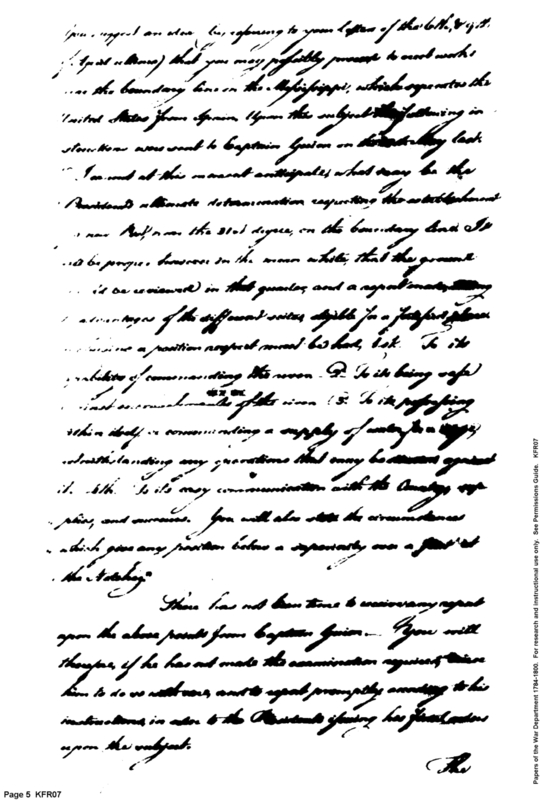 you suggest an idea (in referring to your letters of the 6th, &
that you may possibly proceed to erect works
the boundary line on the Mississippi, which separates the
United States from Spain. Upon this subject the following in
structions were sent to Captain Guion on last.
I cannot at this moment anticipate, what may be the
President's ultimate determination respecting the establishment
near the 31st degree, on the boundary line. It
be proper however in the mean while, that the ground
be reviewed in that quarter, and a report made,
advantages of the different scites, eligible for a fortified
a position respect must be had, 1st. To its
of commanding the river. 2d. To its being safe
encroachments of the river. (3. To its possessing
within itself, or commanding a supply of water for a
notwithstanding any operations that may be against
it. 4th. To its easy communication with the Country, sup
plies, and succours. You will also state the circumstances
which give any position below a superiority over a at
the Natchez"
There has not been time to receive any report
upon the above points from Captain Guion. You will
therefore, if he has not made the examination required,
him to do so and to report promptly according to his
instructions, in order to the Presidents issuing his orders
upon the subject.
The
Page 5 KFR07
Papers of the War Department 1784-1800. For research and instructional use only. See Permissions Guide. KFR07